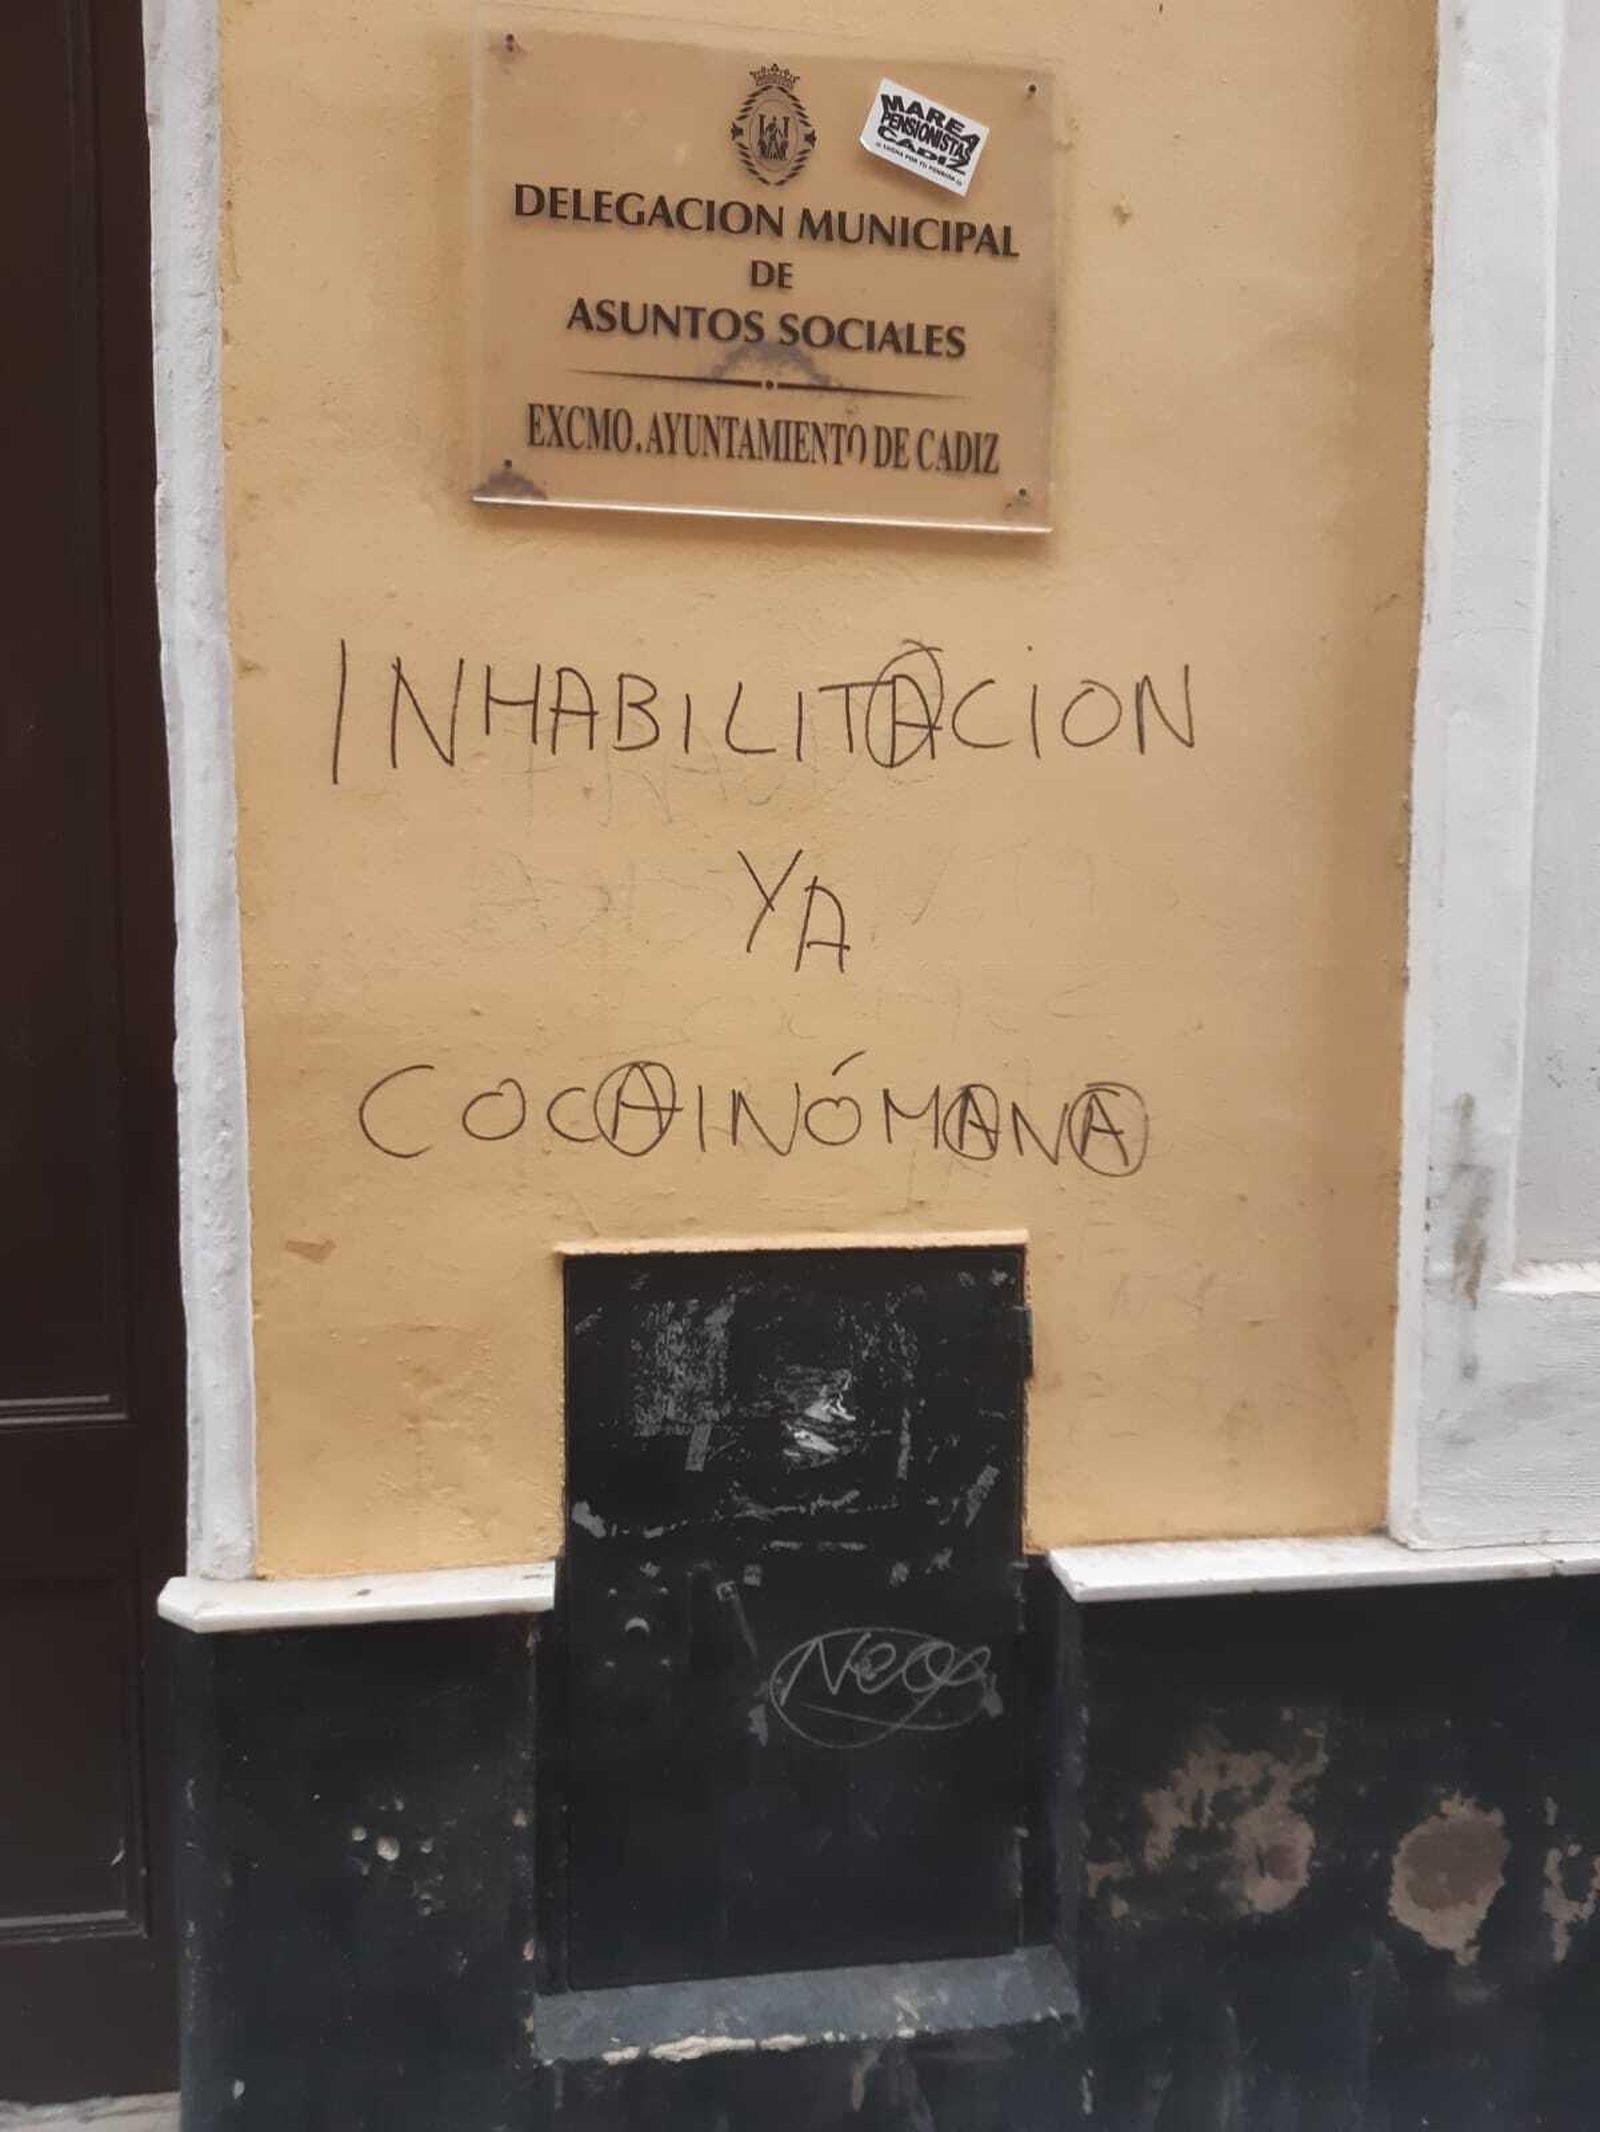 MAREA
PENSIONISTAS
CADIZ
DELEGACION MUNICIPAL
DE
ASUNTOS SOCIALES
EXCMO. AYUNTAMIENTO DE CADIZ
INHABILITACION
YA
COCAINÓMANA